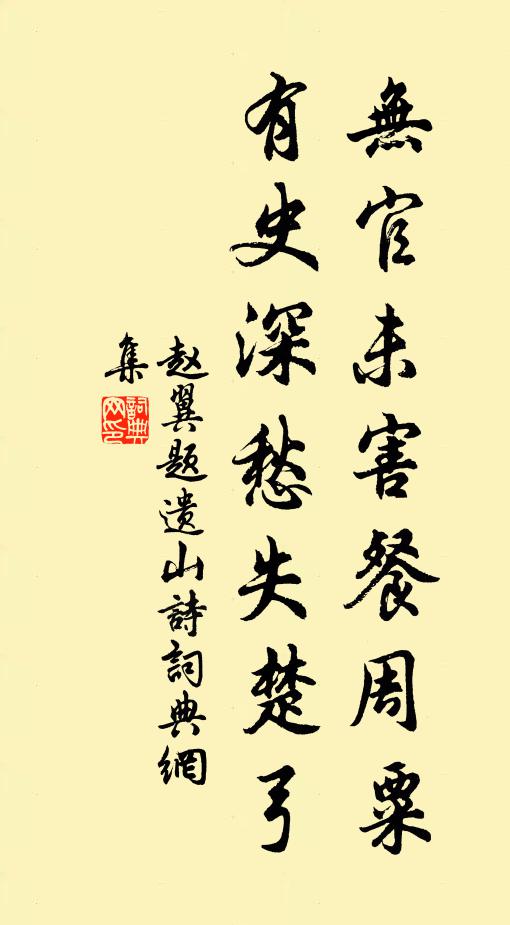 無官未害餐周粟
有史深愁失楚弓
赵翼題遺山詩詞典網
集
詞典
网印